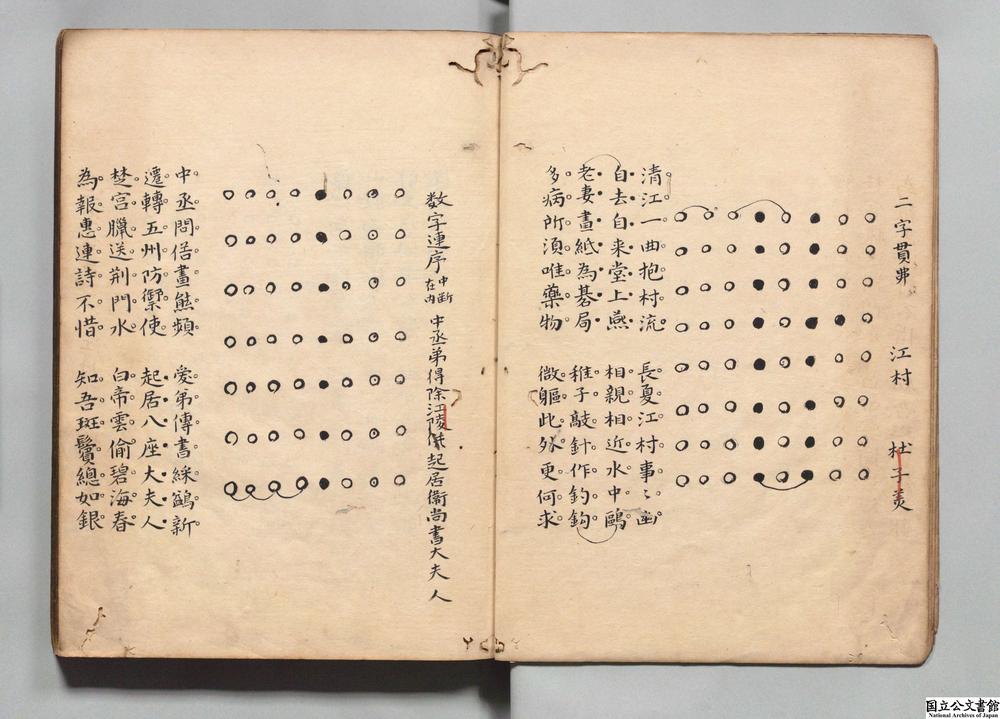 二字貫弗 江村 杜子美
清江一曲抱村流 長夏江村事〻幽
自去自来堂上燕 相親相近水中鷗
老妻畫紙為碁局 稚子敲針作釣鈎
多病所須唯藥物 微軀此外更何求
数字連序 中断在内 中丞弟得除江陵 起居衛尚書大夫人
中丞問俗畫熊頻 愛弟傳書綵鷁新
遷轉五州防禦使 起居八座大夫人
楚宮臘送荆門水 白帝雲偷碧海春
為報惠連詩不惜 知吾斑鬢總如銀
国立公文書館
National Archives of Japan